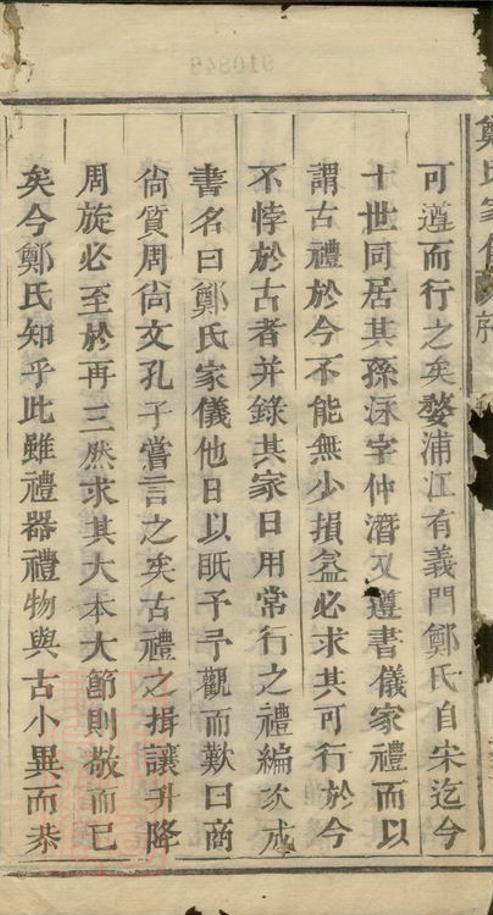 鄭氏家儀 序
可遵而行之矣婺浦江有義門鄭氏自宋迄今
十世同居其孫泳字仲潛又遵書儀家禮而以
謂古禮於今不能無少損益必求其可行於今
不悖於古者并錄其家日用常行之禮編次成
書名曰鄭氏家儀他日以眎予予觀而歎曰商
尚質周尚文孔子嘗言之矣古禮之揖讓升降
周旋必至於再三然求其大本大節則敬而已
矣今鄭氏知乎此雖禮器禮物與古小異而恭